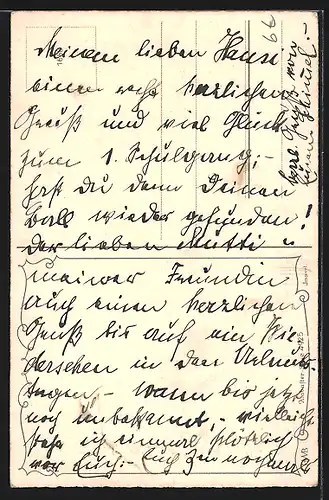 Meinem lieben Hansi
einen recht herzlichen
Gruß und viel Glück
zum 1. Schulgang,-
hast du denn Deinen
Ball wieder gefunden!
Der lieben Mutti u.
meiner Freundin
auch einen herzlichen
Gruß bis auf ein Wie-
dersehen in den
tagen - wann bis jetzt
noch unbekannt, - vielleicht
stehe ich einmal plötzlich
vor Euch:- Euch
66
herzl. Gruß von